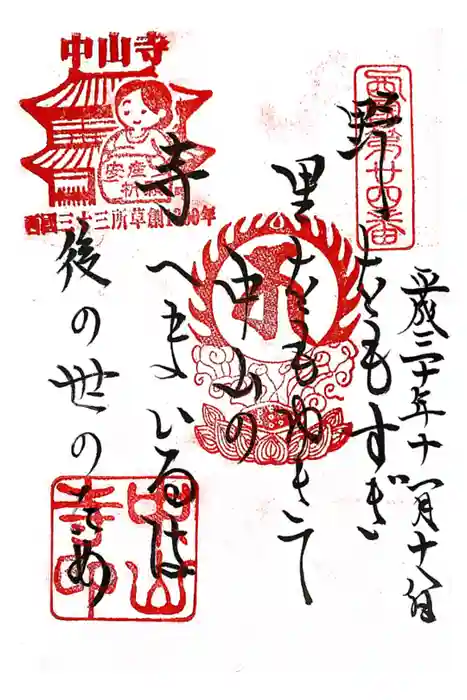 平成三十年十一月十八日
西国第廿四番
野をもすぎ
里をもゆきて
中山の
寺へまいるは
後の世のため
中山寺
安産
祈願
西國三十三所草創1300年
中山
寺印